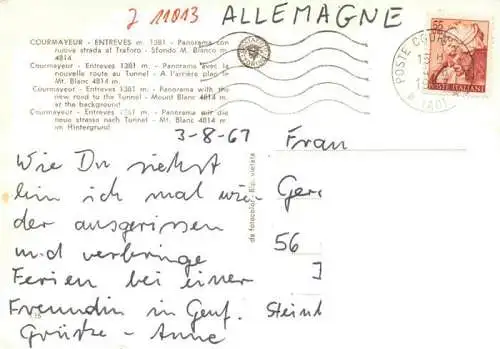 J 11013 ALLEMAGNE
COURMAYEUR - ENTREVES m. 1381 - Panorama con
nuova strada al Traforo - Sfondo M. Bianco m.
4814
Courmayeur - Entreves 1381 m. - Panorama avec la
nouvelle route au Tunnel - A l'arrière plan le
Mt. Blanc 4814 m.
Courmayeur - Entreves 1381 m. - Panorama with the
new road to the Tunnel - Mount Blanc 4814 m.
at the background
Courmayeur - Entreves 1381 m. - Panorama mit die
neue strasse nach Tunnel - Mt. Blanc 4814 m.
im Hintergrund
POSTE ITALIANE
3-8-67
Wie Du siehst
bin ich mal wie-
der ausgerissen
und verbringe
Ferien bei einer
Freundin in Genf.
Grüsse - Anne
Frau
Ger
56
J
Steinh